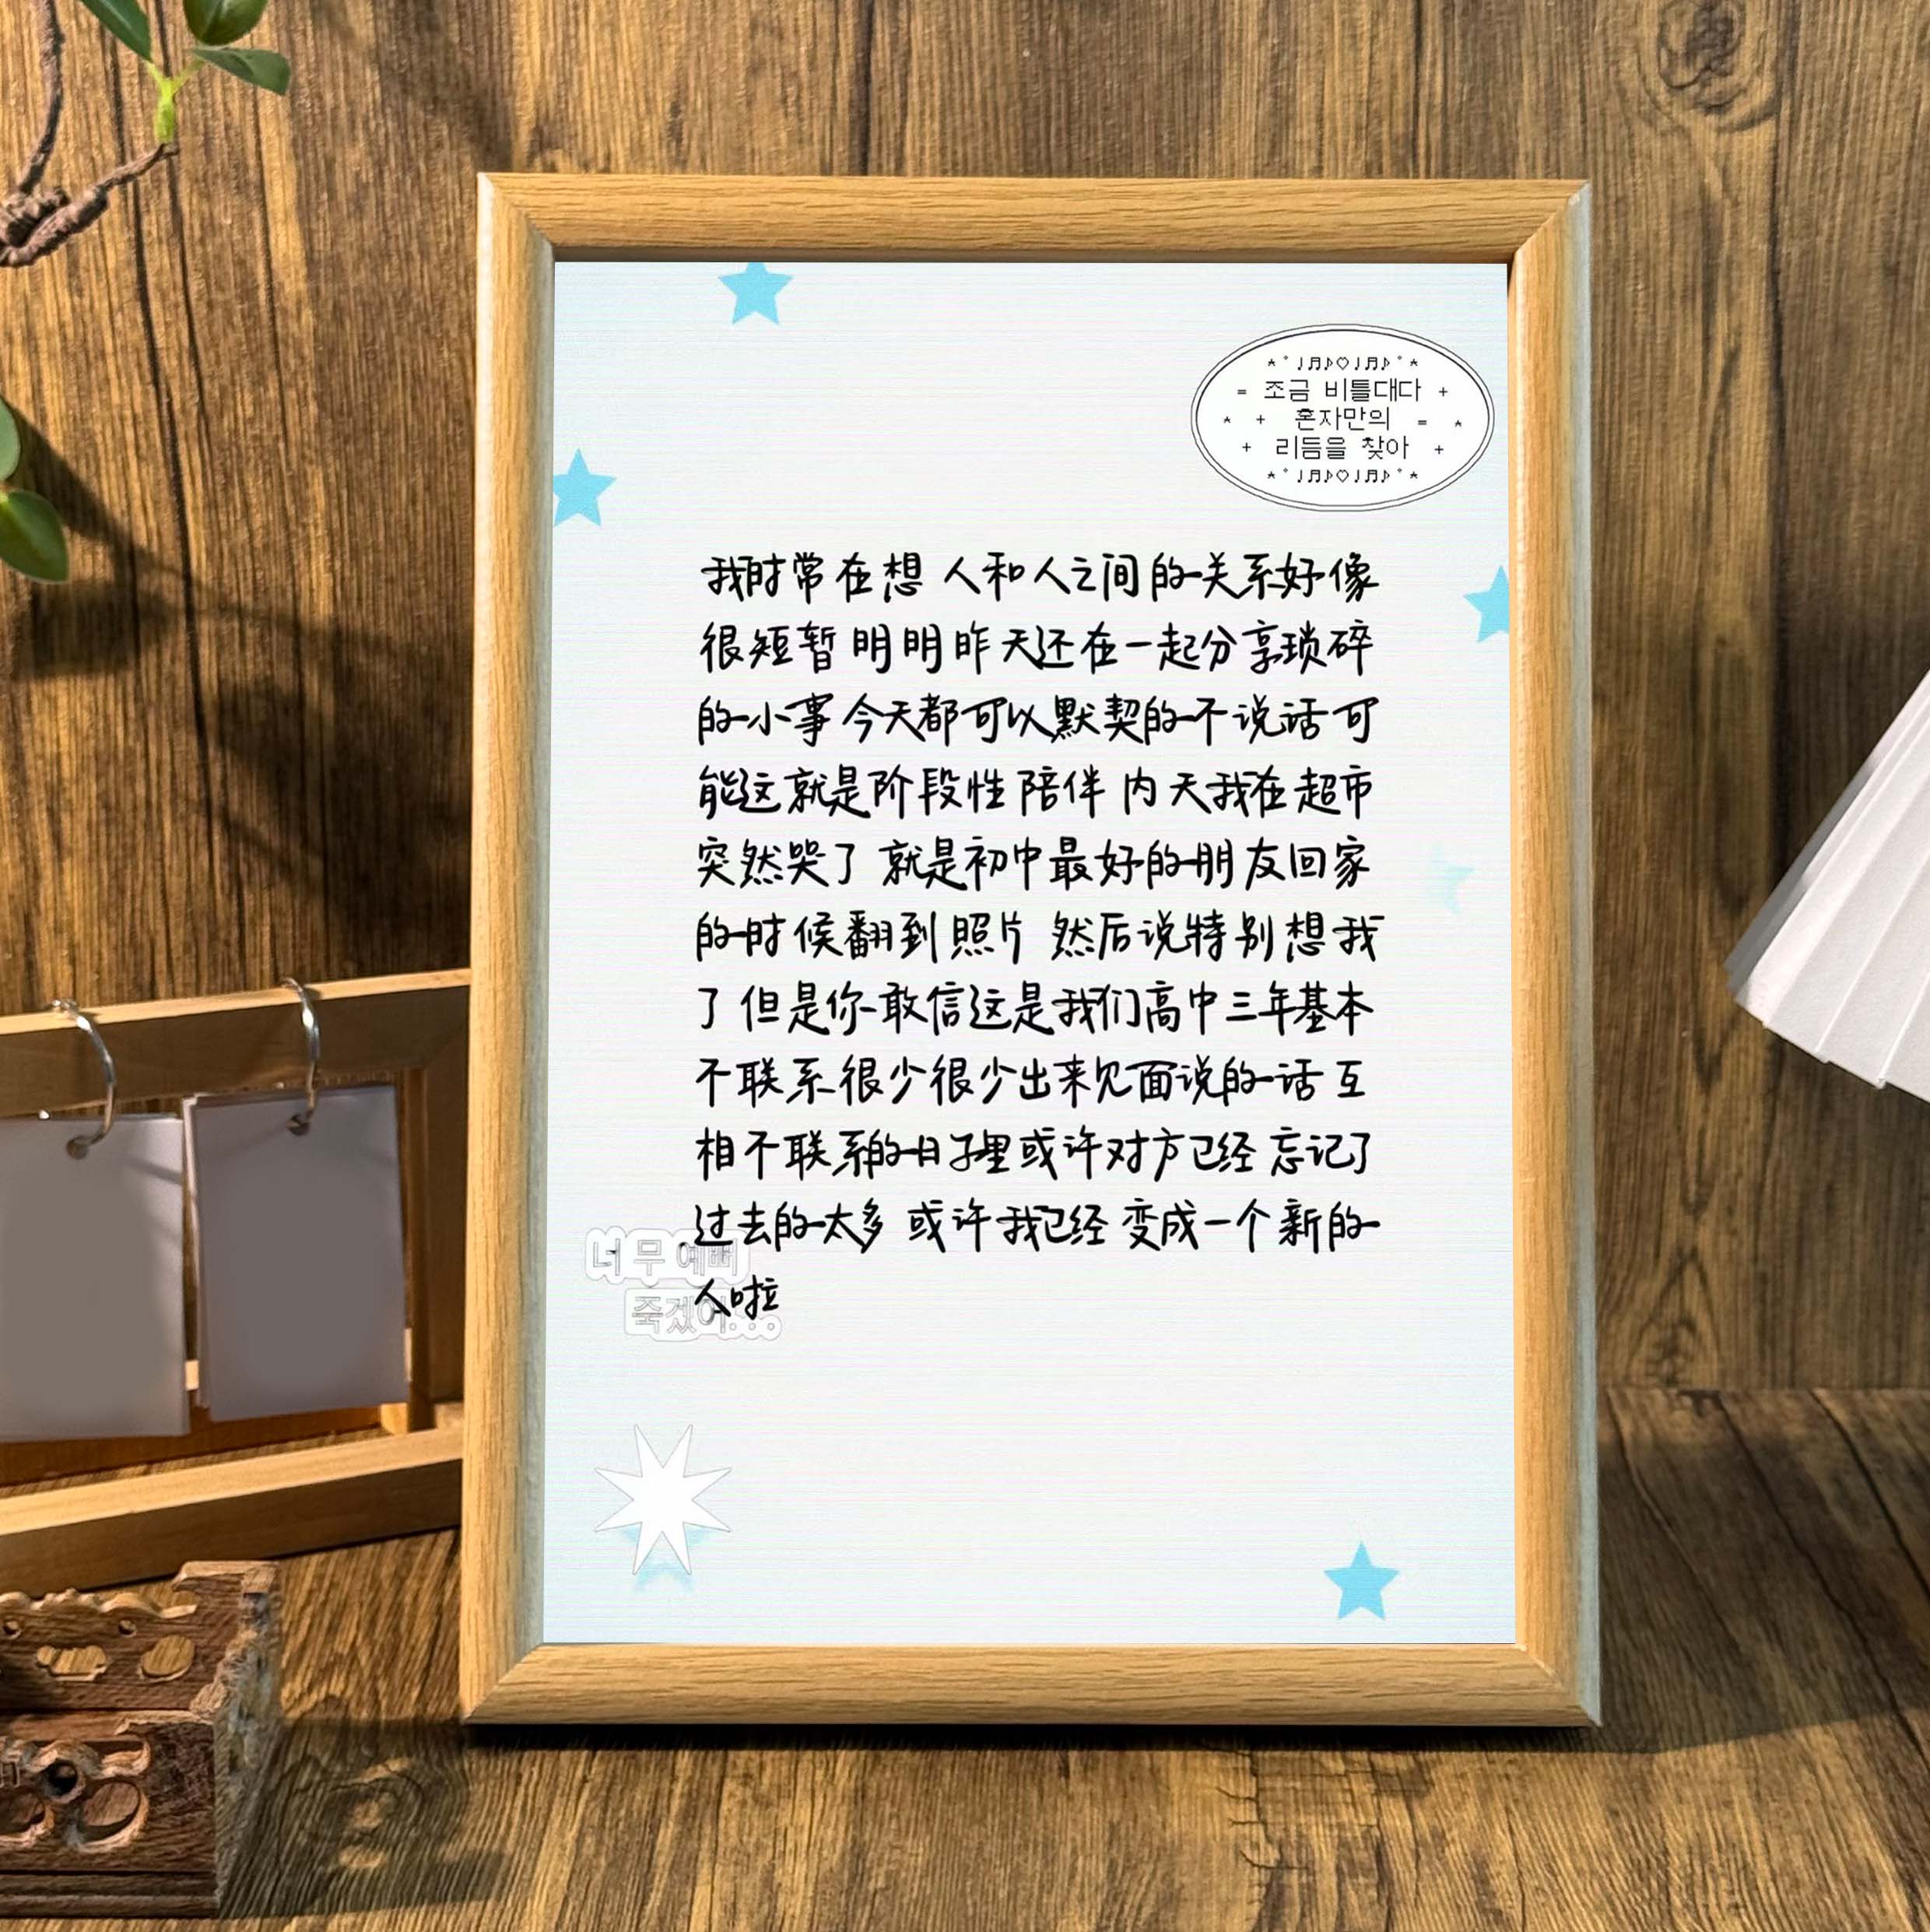 조금 비틀대다
혼자만의
리듬을 찾아
我时常在想 人和人之间的关系好像
很短暂 明明昨天还在一起分享琐碎
的小事 今天都可以默契的不说话 可
能这就是阶段性陪伴 内天我在超市
突然哭了 就是初中最好的朋友回家
的时候翻到照片 然后说特别想我
了 但是你敢信这是我们高中三年基本
不联系很少很少出来见面说的话 互
相不联系的日子里或许对方已经忘记了
过去的太多 或许我已经变成一个新的
人啦
너무 예뻐
죽겠어...